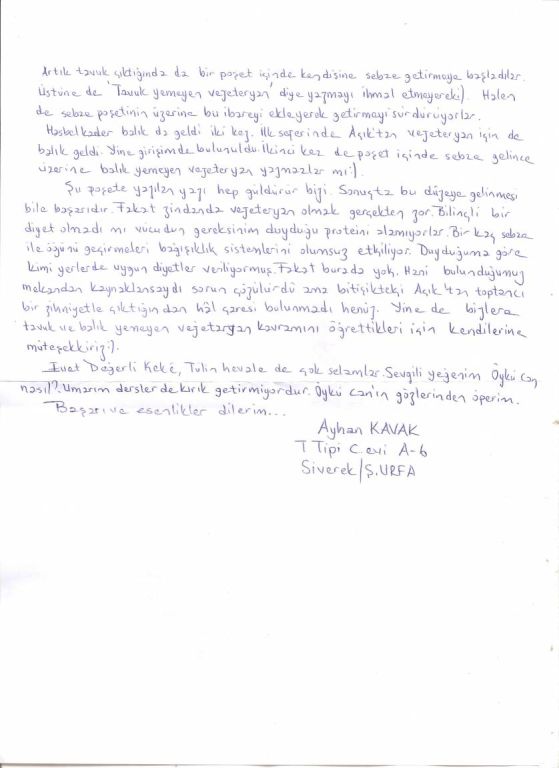 Artık tavuk çıktığında da bir poşet içinde kendisine sebze getirmeye başladılar.
Üstüne de 'Tavuk yemeyen vejeteryan' diye yazmayı ihmal etmeyerek:). Halen
de sebze poşetinin üzerine bu ibareyi ekleyerek getirmeyi sürdürüyorlar.
Hasbelkader balık da geldi iki kez. İlk seferinde Açık'tan vejeteryan için de
balık geldi. Yine girişimde bulunuldu. İkinci kez de poşet içinde sebze gelince
üzerine balık yemeyen vejeteryan yazmazlar mı:)
Şu poşete yazılan yazı hep güldürür bizi. Sonuçta bu düzeye gelinmesi
bile başarıdır. Fakat zindanda vejeteryan olmak gerçekten zor. Bilinçli bir
diyet olmadı mı vücudun gereksinim duyduğu proteini alamıyorlar. Bir kaç sebze
ile öğünü geçirmeleri bağışıklık sistemlerini olumsuz etkiliyor. Duyduğuma göre
kimi yerlerde uygun diyetler veriliyormuş. Fakat burada yok. Hani bulunduğumuz
mekandan kaynaklansaydı sorun çözülürdü ama bitişikteki Açık'tan toptancı
bir zihniyetle çıktığından hâl çaresi bulunmadı henüz. Yine de bizlere
tavuk ve balık yemeyen vejeteryan kavramını öğrettikleri için kendilerine
müteşekkiriz:).
Evet Değerli Keké, Tulin hevale de çok selamlar. Sevgili yeğenim Öykü Can
nasıl? Umarım derslerde kırık getirmiyordur. Öykü Can'ın gözlerinden öperim.
Başarı ve esenlikler dilerim...
Ayhan KAVAK
T Tipi Cevi A-6
Siverek/Ş.URFA